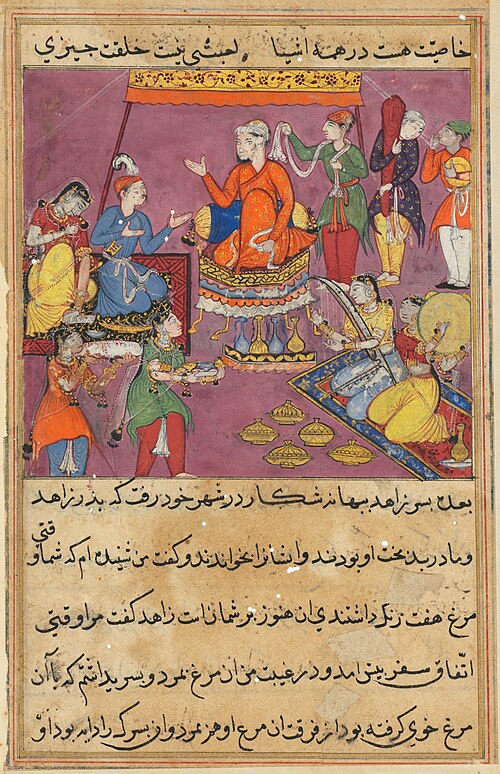 خاصیّت هست در همه اشیا لعبثی نیست خلقت چیزی
بعده پسر زاهد ببهانه شکار در شهر خود رفت که پدر زاهد
و مادر بدبخت او بودند و ایشانرا بخواندند و گفت من شنیده ام که شما وقتی
مرغ هفت رنگ داشتندی آن هنوز بر شما است زاهد گفت مرا وقتی
اتّفاق سفر پیش آمد و در غیبت من آن مرغ بمرد و پسری داشتم که با آن
مرغ خوی گرفته بود از فرقت آن مرغ او هم بمرد و آن پسرک را دایه بود او